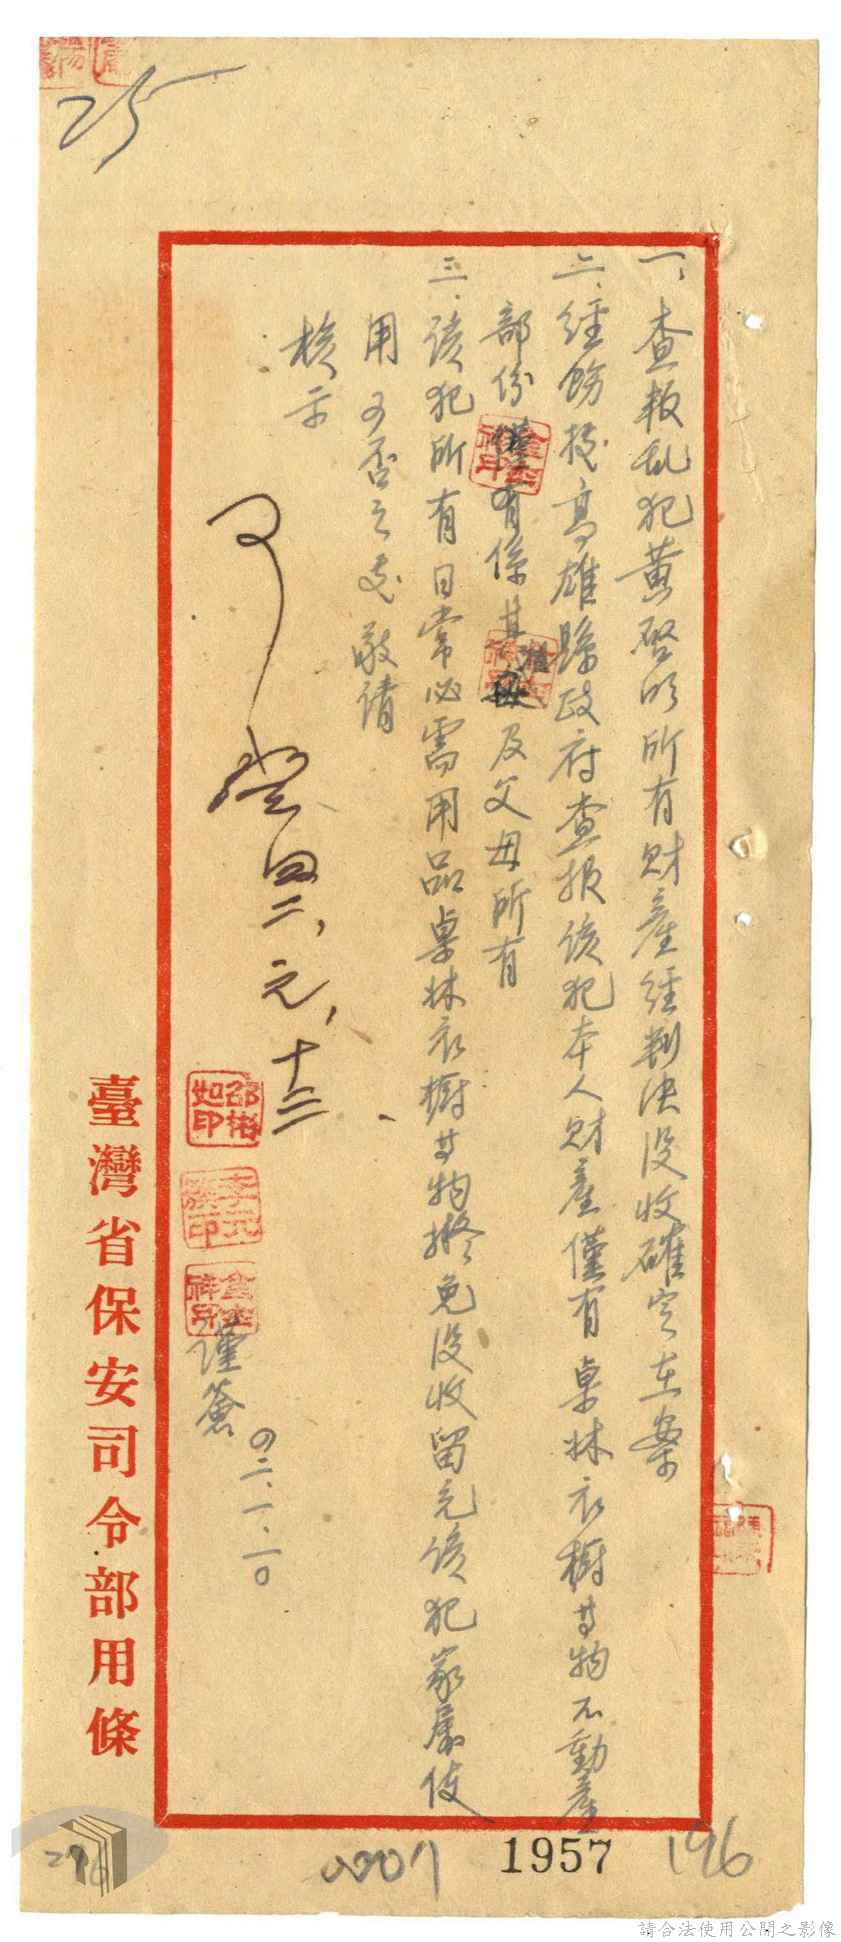 25
一、查叛乱犯黃啓明所有財產經判決沒收確定在案
二、經飭按高雄縣政府查报该犯本人財產僅有桌牀衣櫥等物不動產
部份僅有係其祖及父母所有
三、该犯所有日常必需用品桌牀衣櫥等物擬免沒收留充该犯家屬使
用可否之处敬請
核示
可
四二,元,十三
邵彬如印
李元簇印
謹簽
四二.一.一〇
臺灣省保安司令部用條
296
0007
1957
196
請合法使用公開之影像